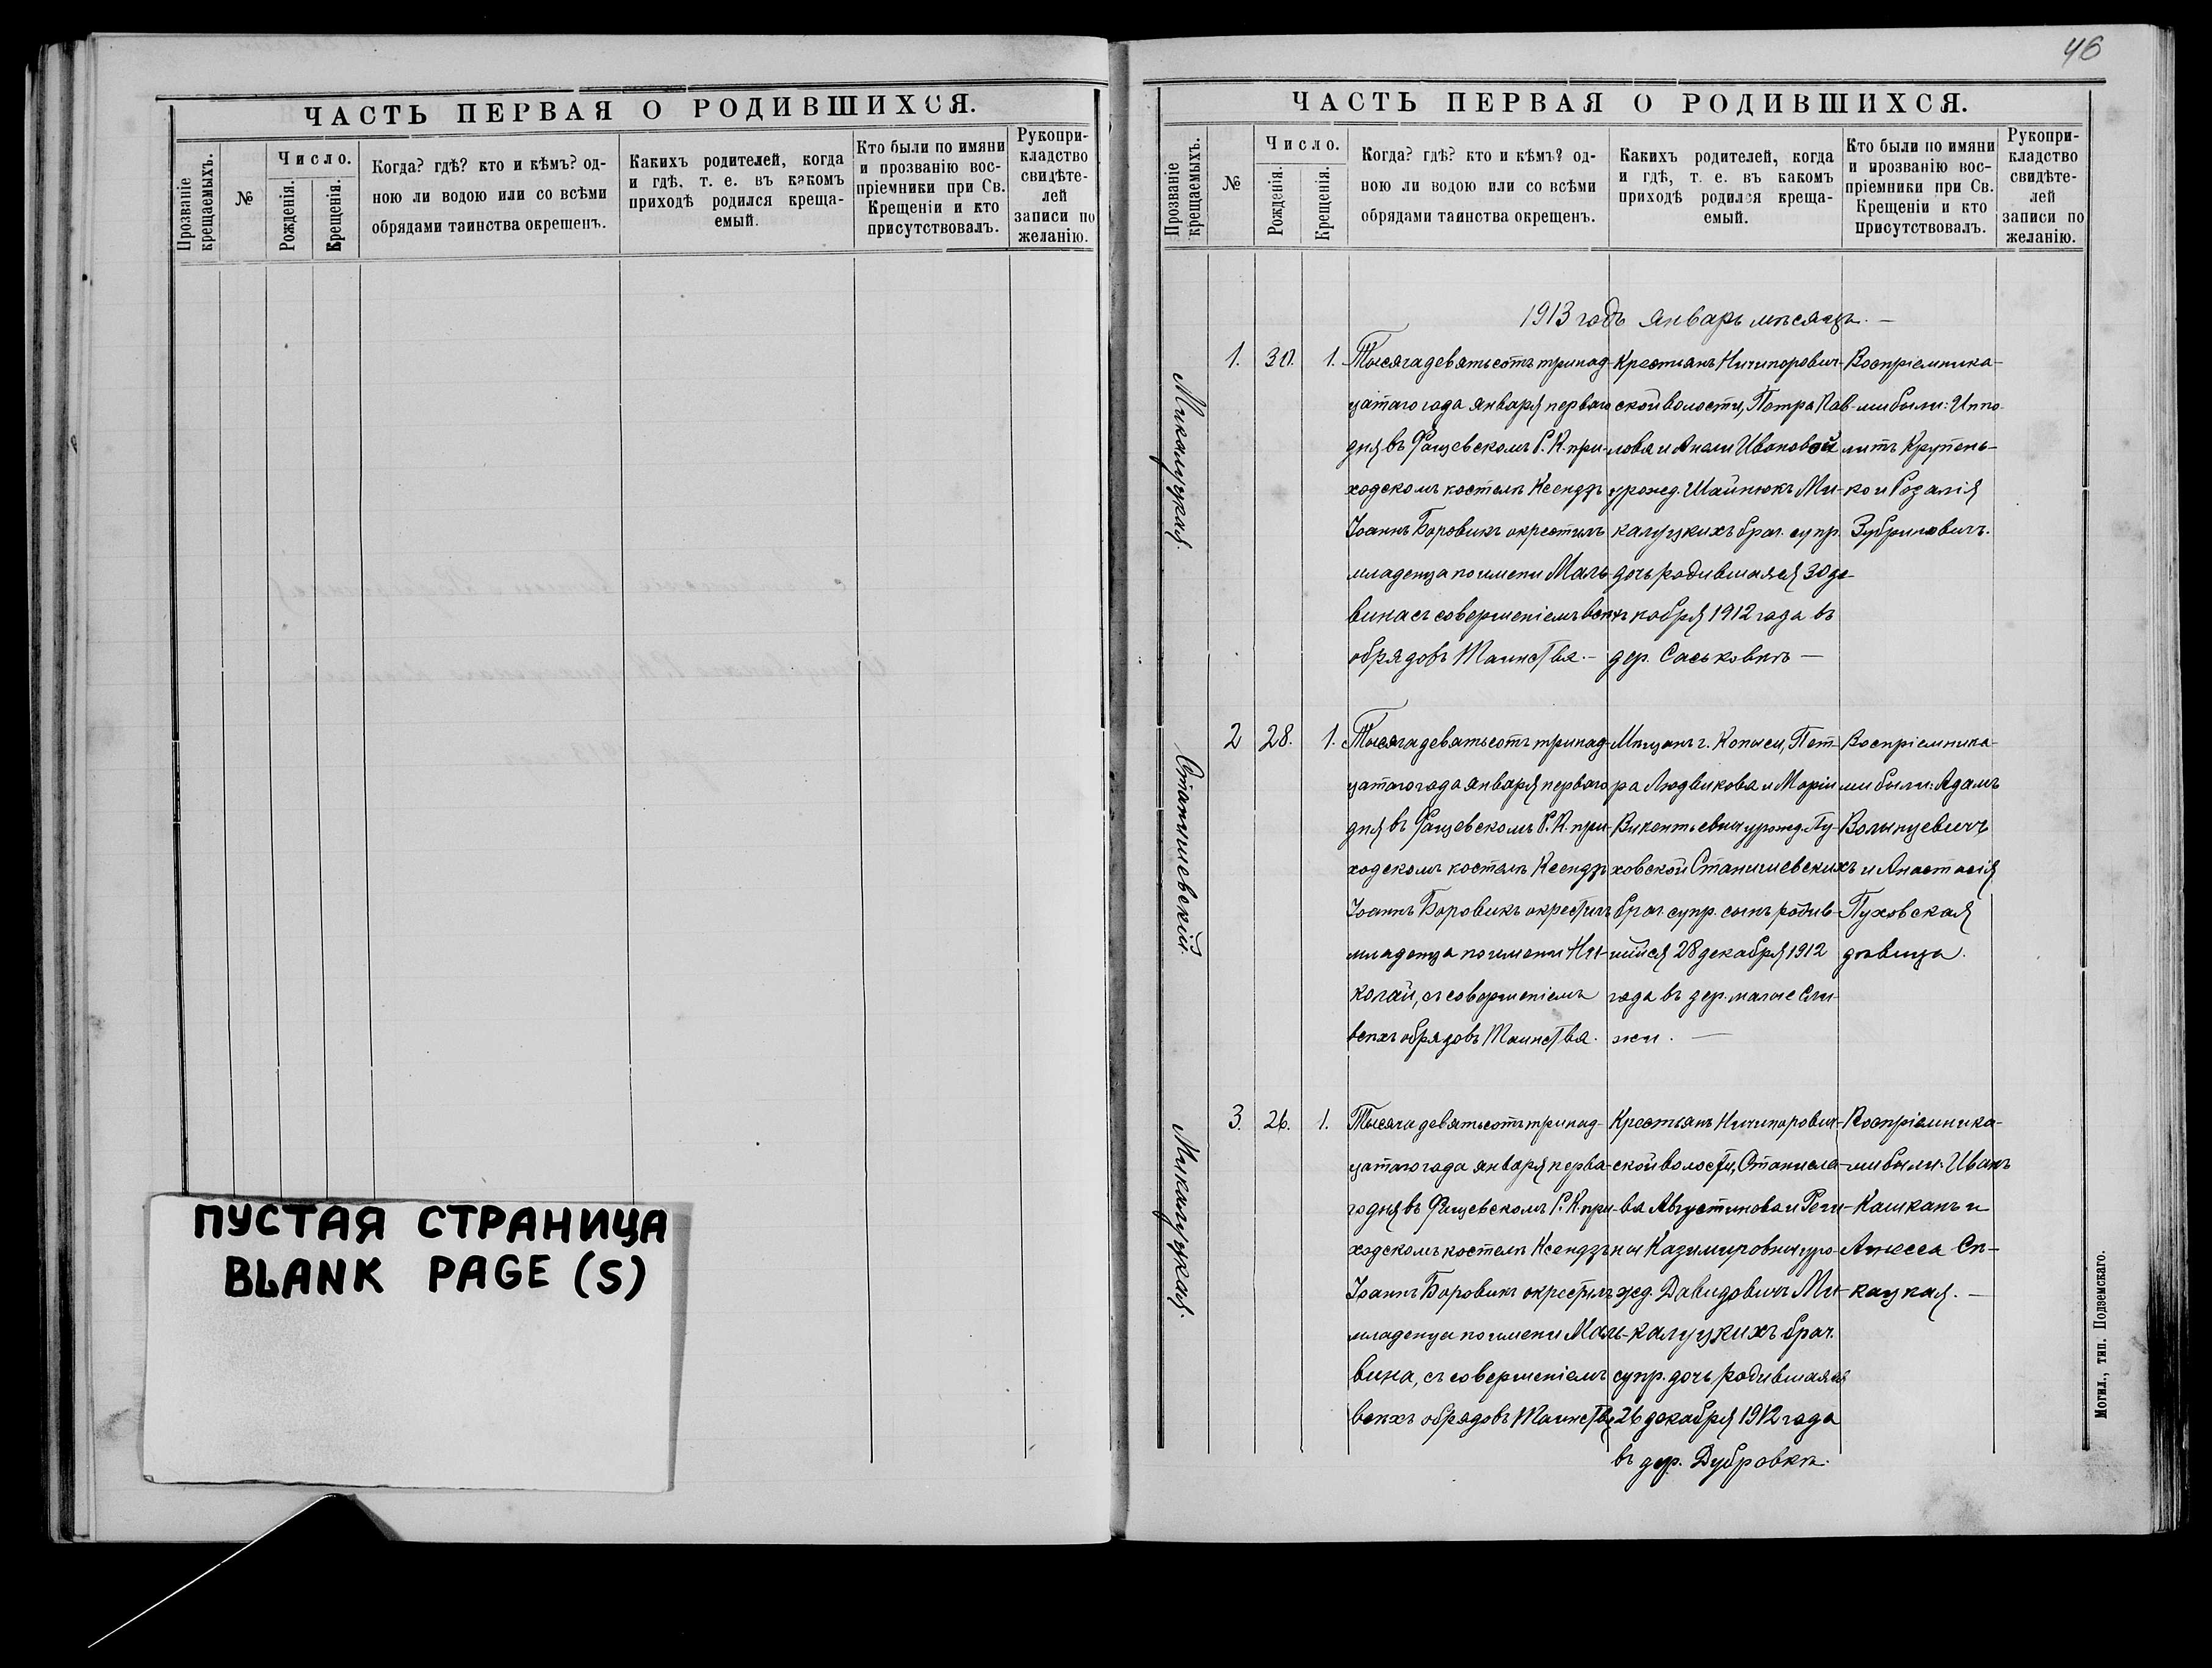 ЧАСТЬ ПЕРВАЯ О РОДИВШИХСЯ.
Прозваніе крещаемыхъ.
№
Число.
Рожденія.
Крещенія.
Когда? гдѣ? кто и кѣмъ? од-
ною ли водою или со всѣми
обрядами таинства окрещенъ.
Какихъ родителей, когда
и гдѣ, т. е. въ какомъ
приходѣ родился креща-
емый.
Кто были по имяни
и прозванію вос-
пріемники при Св.
Крещеніи и кто
присутствовалъ.
Рукопри-
кладство
свидѣте-
лей
записи по
желанію.
ПУСТАЯ СТРАНИЦА
BLANK PAGE (S)
46
ЧАСТЬ ПЕРВАЯ О РОДИВШИХСЯ.
Прозваніе крещаемыхъ.
№
Число.
Рожденія.
Крещенія.
Когда? гдѣ? кто и кѣмъ? од-
ною ли водою или со всѣми
обрядами таинства окрещенъ.
Какихъ родителей, когда
и гдѣ, т. е. въ какомъ
приходѣ родился креща-
емый.
Кто были по имяни
и прозванію вос-
пріемники при Св.
Крещеніи и кто
присутствовалъ.
Рукопри-
кладство
свидѣте-
лей
записи по
желанію.
1913 годъ январь мѣсяцъ. —
Микалуцкая.
1.
30.
1.
Тысяча девятьсотъ тринад-
цатаго года января перваго
дня въ Фащевскомъ Р. К. при-
ходскомъ костелѣ Ксендзъ
Іоаннъ Боровикъ окрестилъ
младенца по имени Маль-
вина съ совершеніемъ всѣхъ
обрядовъ Таинства. —
Крестьянъ Ничипорович-
ской волости, Петра Пав-
лова и Анели Ивановой
урожд. Шайнюкъ Ми-
калуцкихъ брач. супр.
дочь родившаяся 30 де-
кабря 1912 года въ
дер. Саськовкѣ —
Воспріемника-
ми были: Иппо-
литъ Крупень-
ко и Розалія
Зубриновичъ.
Станишевскій.
2
28.
1.
Тысяча девятьсотъ тринад-
цатаго года января перваго
дня въ Фащевскомъ Р. К. при-
ходскомъ костелѣ Ксендзъ
Іоаннъ Боровикъ окрестилъ
младенца по имени Ни-
колай, съ совершеніемъ
всѣхъ обрядовъ Таинства.
Мѣщанъ г. Копыси, Пет-
ра Людвикова и Маріи
Викентьевны урожд. Пу-
ховской Станишевскихъ
брач. супр. сынъ родив-
шійся 28 декабря 1912
года въ дер. малые Сли-
жи. —
Воспріемника-
ми были: Адамъ
Волынцевичъ
и Анастасія
Пуховская
дѣвица.
Микалуцкая.
3.
26.
1.
Тысяча девятьсотъ тринад-
цатаго года января перва-
го дня въ Фащевскомъ Р. К. при-
ходскомъ костелѣ Ксендзъ
Іоаннъ Боровикъ окрестилъ
младенца по имени Маль-
вина, съ совершеніемъ
всѣхъ обрядовъ Таинства
Крестьянъ Ничипорович-
ской волости, Станисла-
ва Августинова и Реги-
ны Казимировны уро-
жд. Давидовичъ Ми-
калуцкихъ брач.
супр. дочь родившаяся
26 декабря 1912 года
въ дер. Дубровкѣ.
Воспріемника-
ми были: Иванъ
Кашканъ и
Анесса Сѣ-
кацкая. —
Могил., тип. Подземскаго.